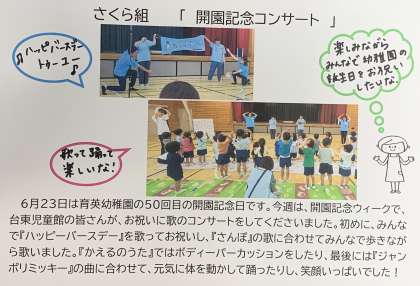 さくら組 「 開園記念コンサート 」
ハッピバースデー
トゥーユー
楽しみながら
みんなで幼稚園の
誕生日をお祝い
したいな。
歌って踊って
楽しいな!
6月23日は育英幼稚園の50回目の開園記念日です。今週は、開園記念ウィークで、
台東児童館の皆さんが、お祝いに歌のコンサートをしてくださいました。初めに、みんな
で『ハッピーバースデー』を歌ってお祝いし、『さんぽ』の歌に合わせてみんなで歩きなが
ら歌いました。『かえるのうた』ではボディーパーカッションをしたり、最後には『ジャン
ボリミッキー』の曲に合わせて、元気に体を動かして踊ったりし、笑顔いっぱいでした!